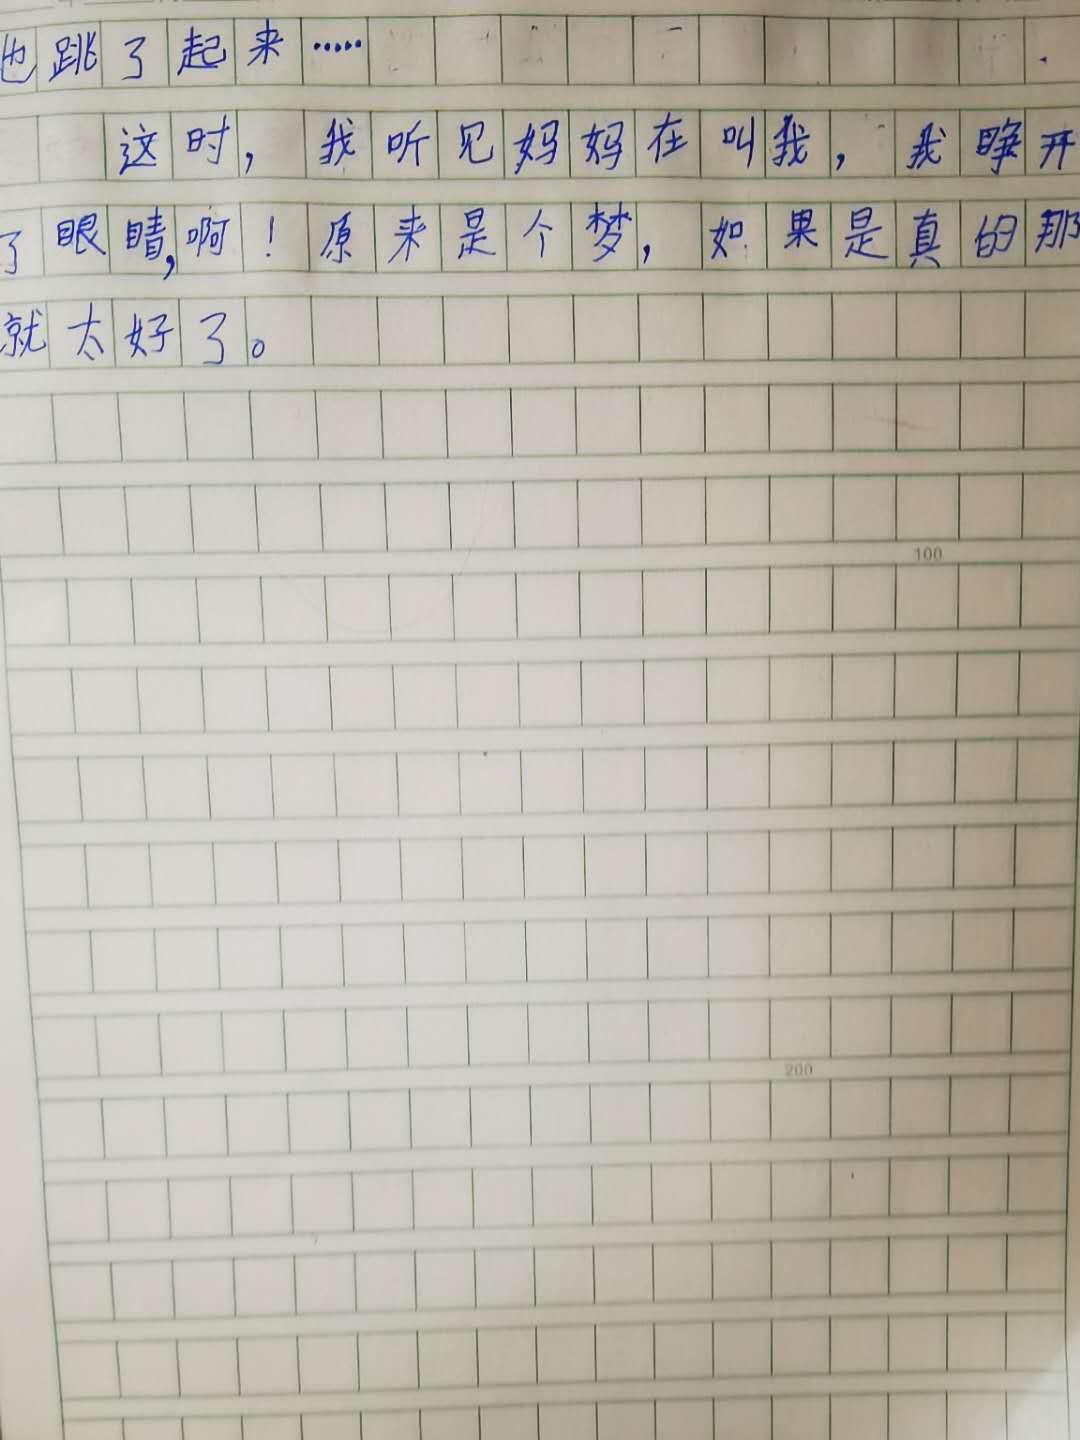 也跳了起来……
这时，我听见妈妈在叫我，我睁开
了眼睛，啊！原来是个梦，如果是真的那
就太好了。
100
200